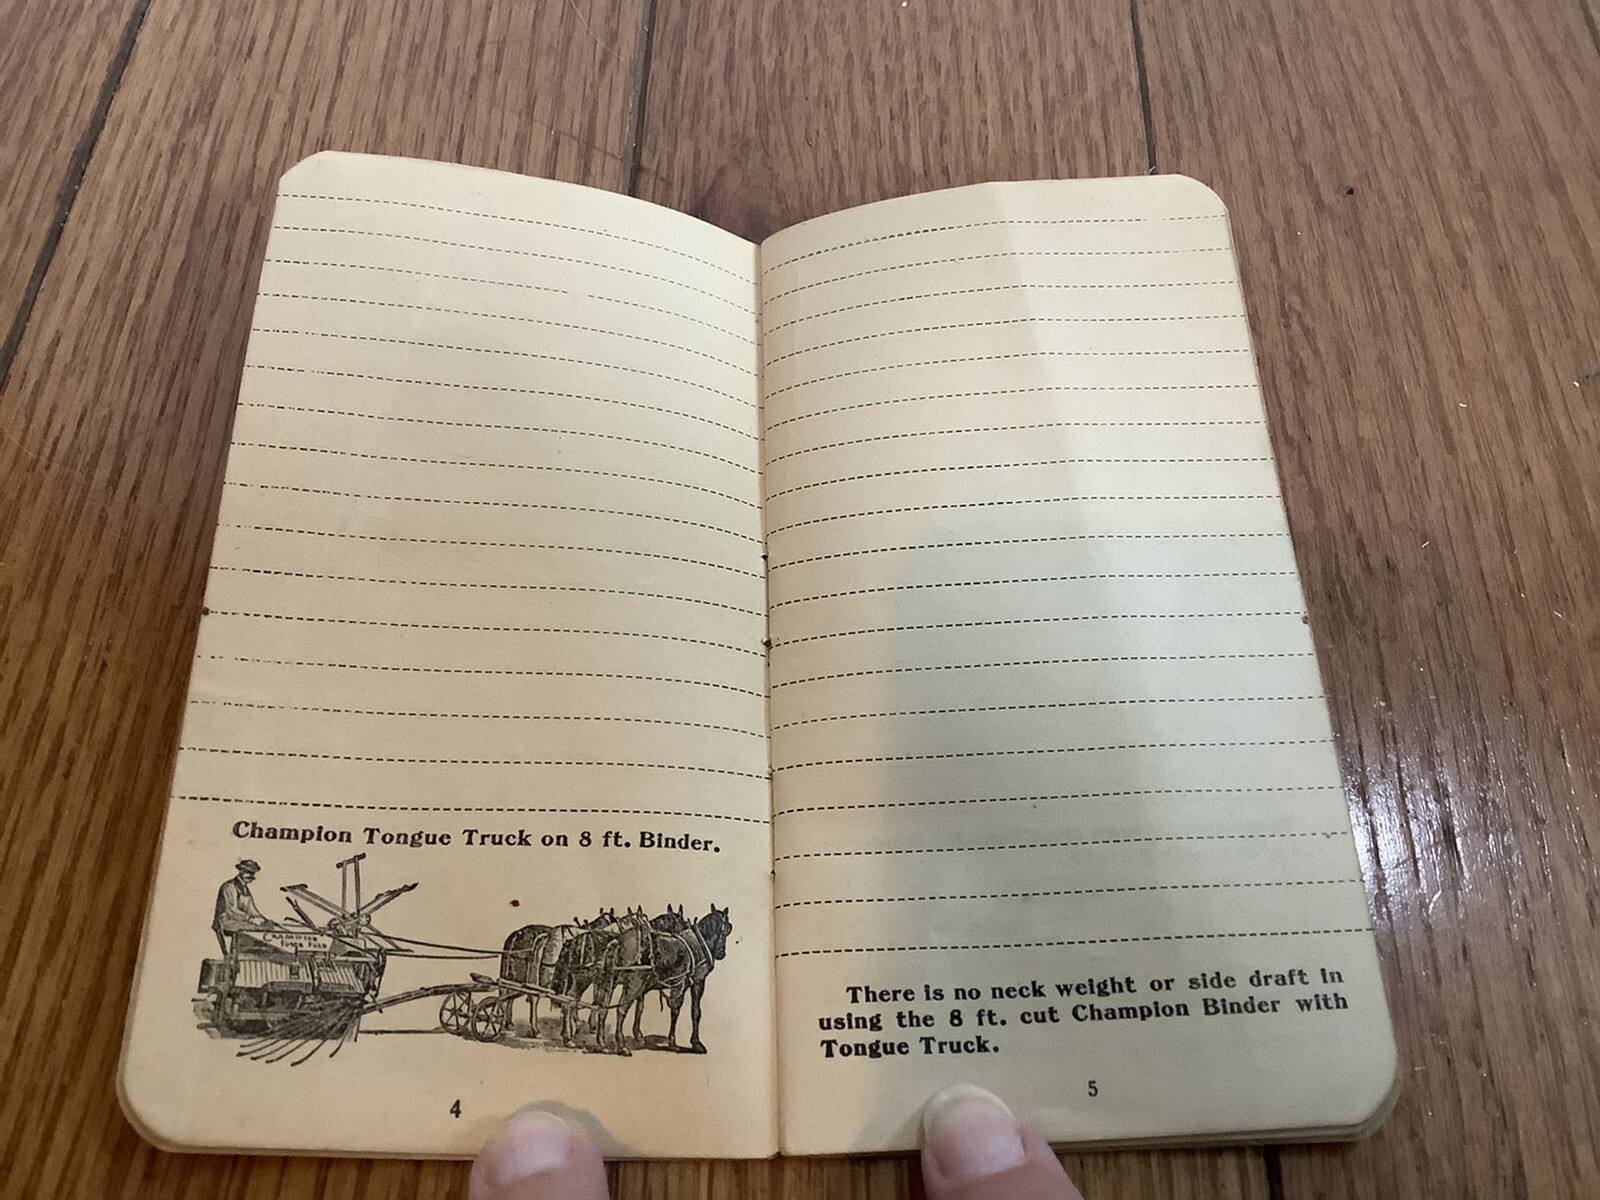 Champion Tongue Truck on 8 ft. Binder.
CHAMPION
4
There is no neck weight or side draft in
using the 8 ft. cut Champion Binder with
Tongue Truck.
5